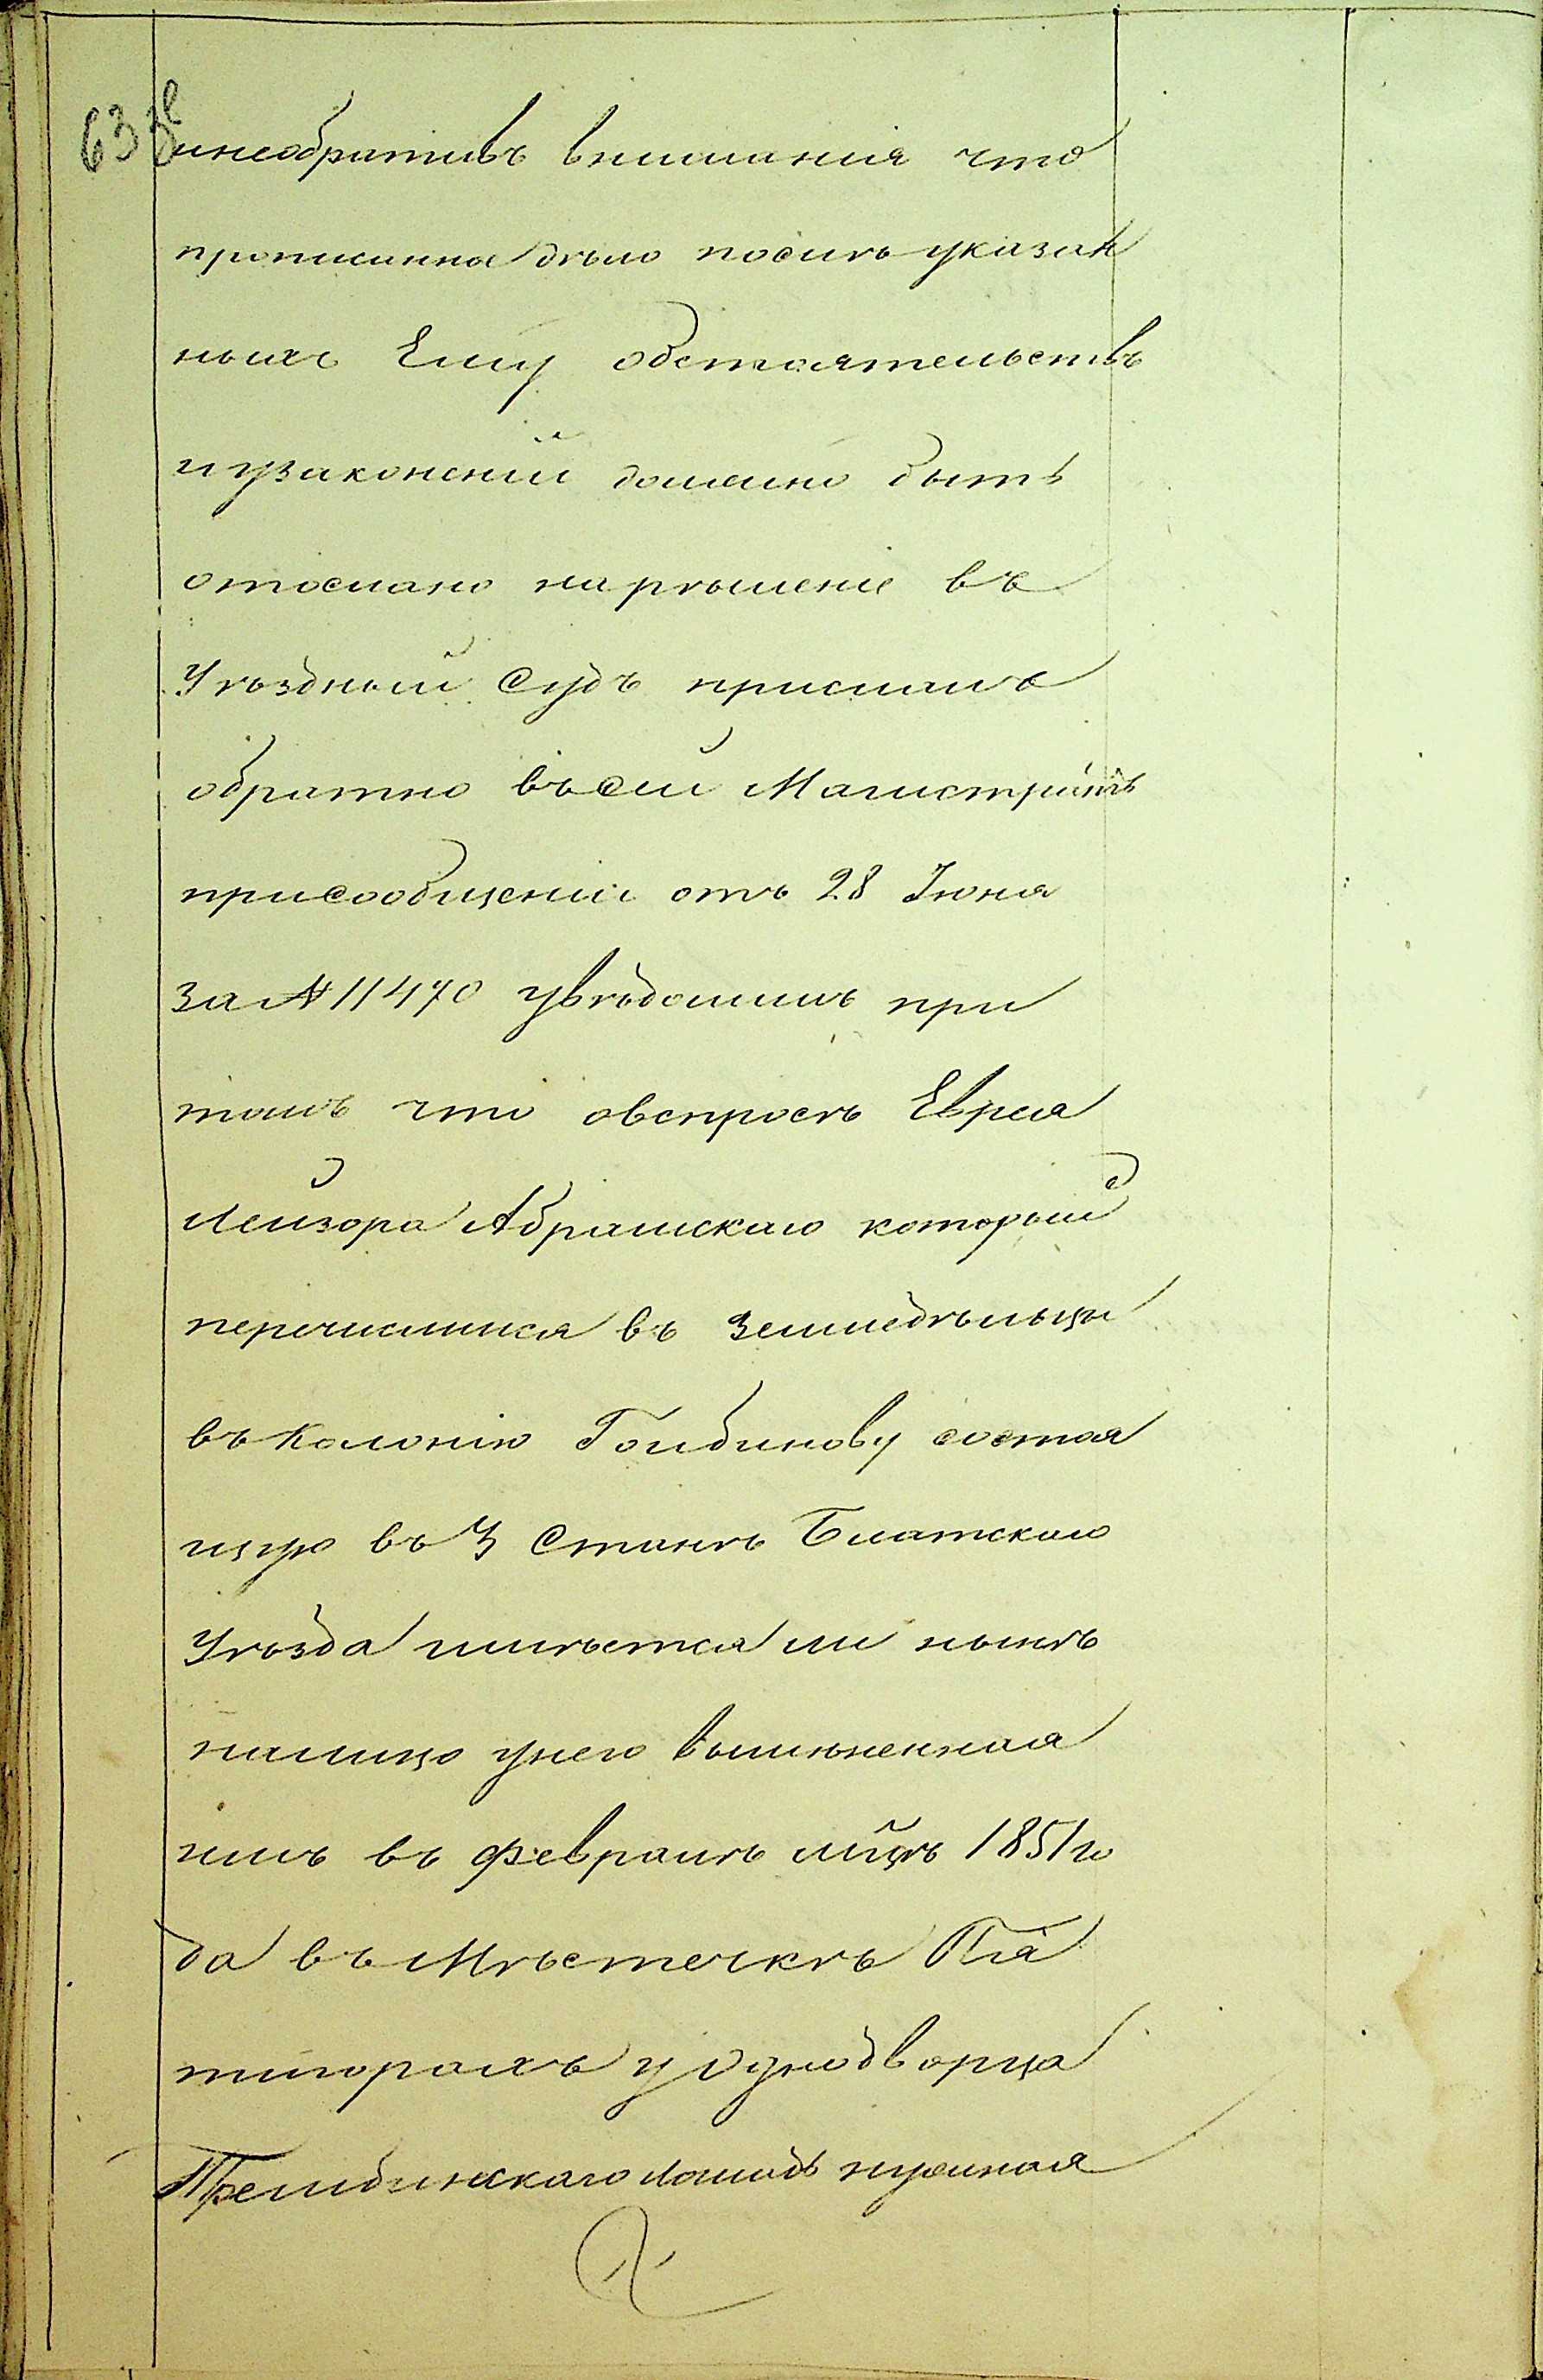 633
инеобративъ вниманія что
прописанное дѣло посимъ указан
нымъ Ему обстоятельствъ
иузаконеній должно быть
отослано нарѣшеніе въ
Уѣздный Судъ прислалъ
обратно въсей Магистратъ
присообщеніи отъ 28 Іюня
за № 11470 увѣдомилъ при
томъ что овспросѣ Еврея
Лейзора Абрамскаго который
перечислился въ Земледѣльцы
въ Колонію Гомбинову состоя
щую въ 3 Станѣ Балтскаго
Уѣзда имѣется ли нынѣ
налицо унего вымѣненная
имъ въ февралѣ мцѣ 1851 го
да въ Мѣстечкѣ Пя
тигорахъ у Однодворца
Трембинскаго лошадь нужная